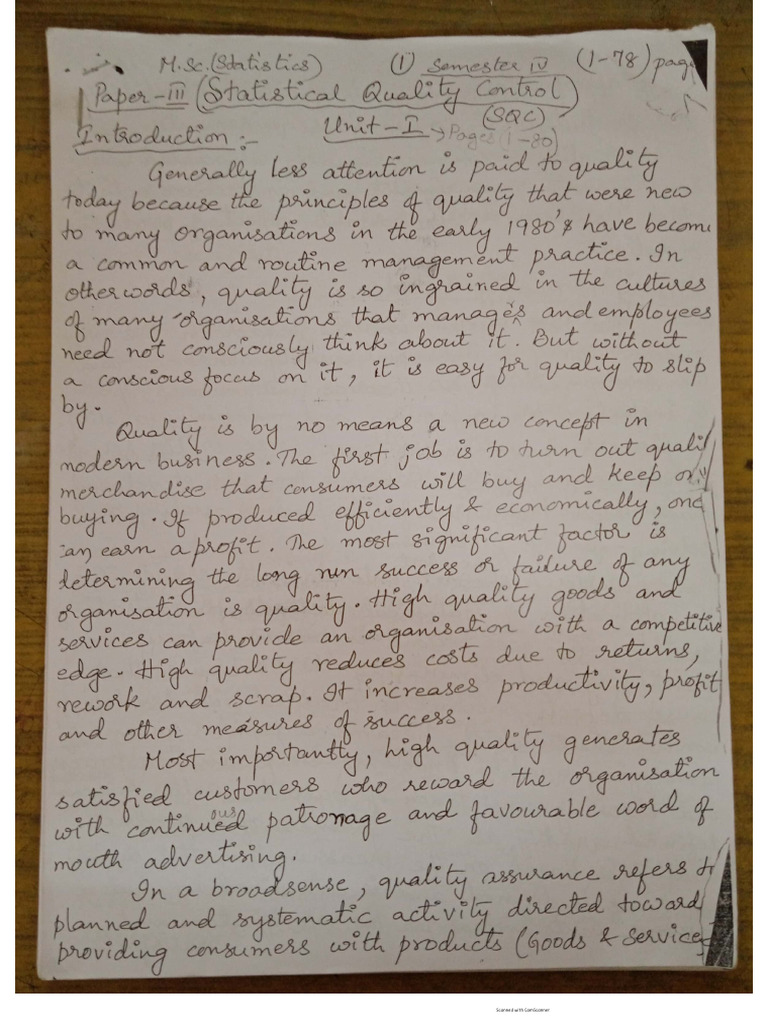 M.Sc.(Statistics) (1) Semester IV (1-78) pag
Paper-III (Statistical Quality Control)
(SQC)
Introduction:- Unit-I → Pages (1-80)
Generally less attention is paid to quality
today because the principles of quality that were new
to many organisations in the early 1980's have becom
a common and routine management practice. In
otherwords, quality is so ingrained in the cultures
of many organisations that manages and employees
need not consciously think about it. But without
a conscious focus on it, it is easy for quality to slip
by.
Quality is by no means a new concept in
modern business. The first job is to turn out quali
merchandise that consumers will buy and keep on
buying. If produced efficiently & economically, one
can earn a profit. The most significant factor is
determining the long run success or failure of any
organisation is quality. High quality goods and
services can provide an organisation with a competitive
edge. High quality reduces costs due to returns,
rework and scrap. It increases productivity, profit
and other measures of success.
Most importantly, high quality generates
satisfied customers who reward the organisation
with continued patronage and favourable word of
mouth advertising.
In a broadsense, quality assurance refers t
planned and systematic activity directed toward
providing consumers with products (Goods & Service
Scanned with CamScanner